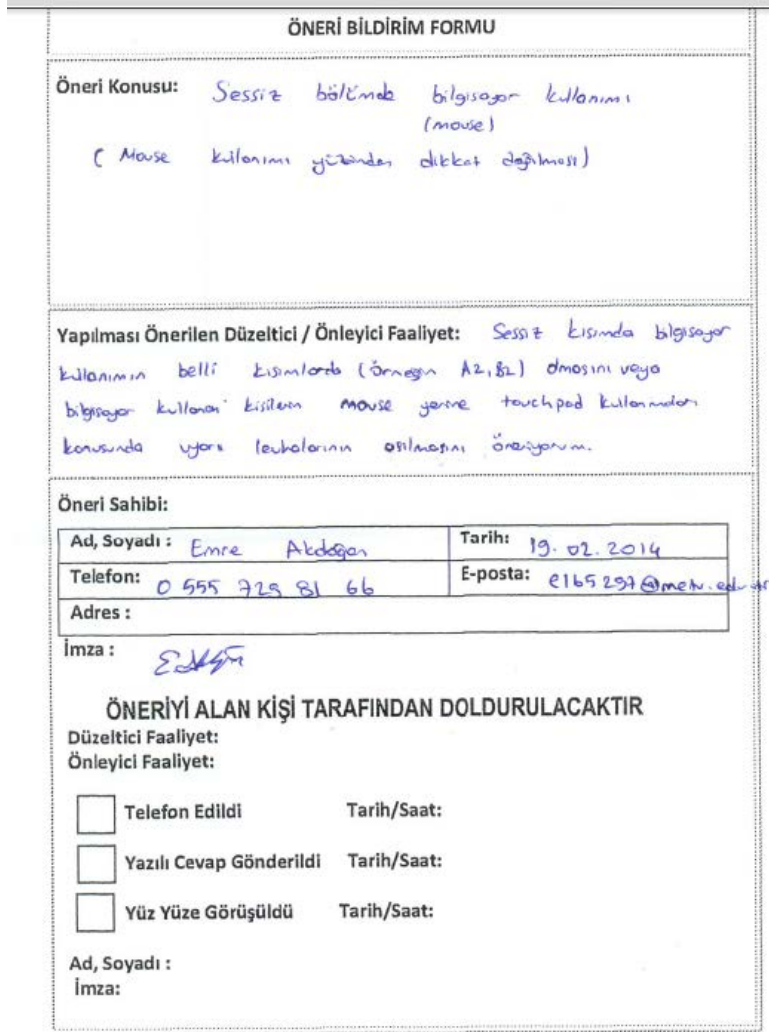 ÖNERİ BİLDİRİM FORMU
Öneri Konusu: Sessiz bölümde bilgisayar kullanımı
(mouse)
( Mouse kullanımı yüzünden dikkat dağılması)
Yapılması Önerilen Düzeltici / Önleyici Faaliyet: Sessiz kısımda bilgisayar
kullanımın belli kısımlarda (örneğin A2, B2) olmasını veya
bilgisayar kullanan kişilerin mouse yerine touchpad kullanmaları
konusunda uyarı levhalarının asılmasını öneriyorum.
Öneri Sahibi:
Ad, Soyadı : Emre Akdoğan Tarih: 19.02.2014
Telefon: 0 555 729 81 66 E-posta: e165297@metu.edu.tr
Adres :
İmza :
ÖNERİYİ ALAN KİŞİ TARAFINDAN DOLDURULACAKTIR
Düzeltici Faaliyet:
Önleyici Faaliyet:
Telefon Edildi Tarih/Saat:
Yazılı Cevap Gönderildi Tarih/Saat:
Yüz Yüze Görüşüldü Tarih/Saat:
Ad, Soyadı :
İmza: